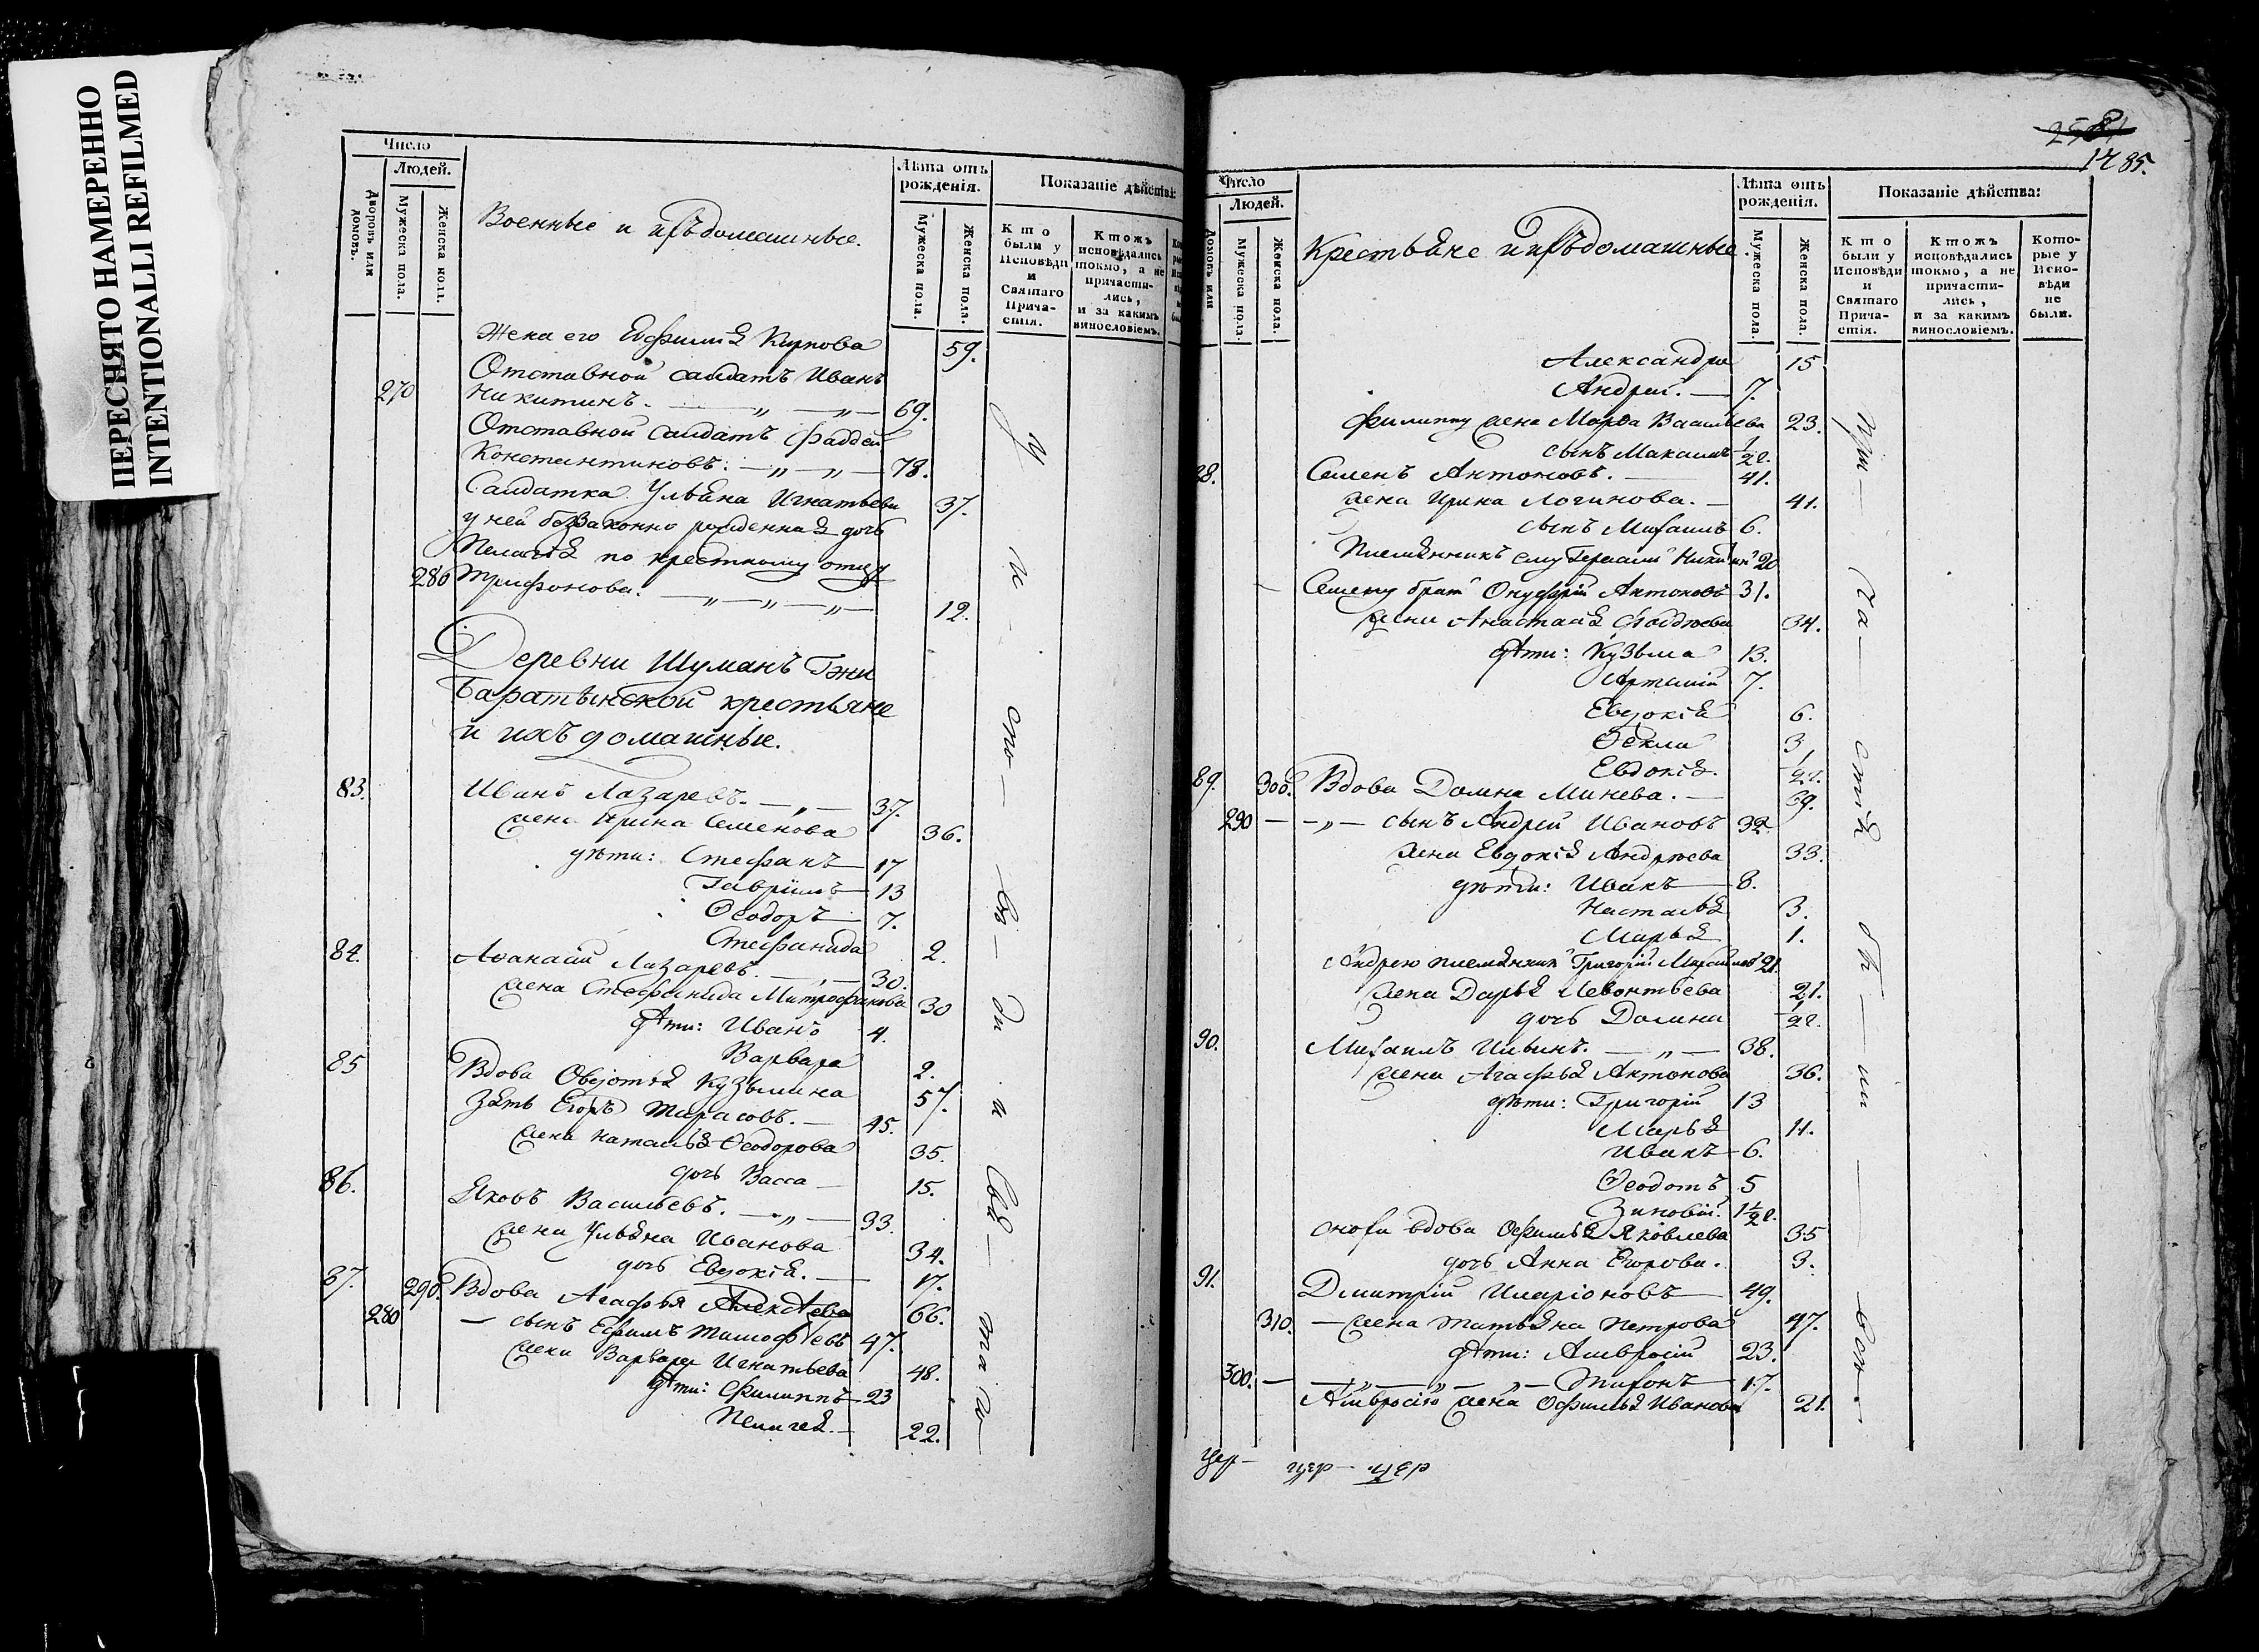 ПЕРЕСНЯТО НАМЕРЕННО
INTENTIONALLI REFILMED
Число
Людей.
Дворовъ или домовъ.
Мужеска пола.
Женска пола.
Военные и ихъ домашные.
Лѣта отъ рожденія.
Мужеска пола.
Женска пола.
Показаніе дѣйства:
Кто были у Исповѣди и Святаго Причастія.
Ктожъ исповѣдались токмо, а не причастились, и за какимъ винословіемъ.
Жена его Евфимія Карпова 59.
Отставной салдатъ Иванъ
270 Никитинъ. — „ — „ — 69.
Отставной салдатъ Фаддей
Константиновъ. — „ — „ — 78.
Салдатка Ульяна Игнатьева 37.
у ней беззаконно рожденная дочь
Пелагія по крестному отцу
280 Трифонова. — „ — „ — „ — 12.
Деревни Шуманъ Гжи
Баратынской крестьяне
и ихъ домашные.
83. Иванъ Лазаревъ. — „ — 37.
жена Ирина Семенова 36.
дѣти: Стефанъ — 17
Гаврiилъ — 13
Ѳеодоръ — 7.
Стефанида 2.
84. Аѳанасій Лазаревъ. — „ — 30.
жена Стефанида Митрофанова 30
дѣти: Иванъ 4.
Варвара 2.
85 Вдова Ѳедотья Кузьмина 57.
зять Егоръ Тарасовъ. — 45.
жена Наталья Ѳеодорова 35.
дочь Васса — 15.
86. Яковъ Васильевъ. — „ — 33.
жена Ульяна Иванова 34.
дочь Евдокія. — 17.
87. 290. Вдова Агафья Алексѣева 66.
280 — сынъ Ефимъ Тимофѣевъ 47.
жена Варвара Игнатьева 48.
дѣти: Филиппъ — 23
Пелагея. — 22.
У и спо — вѣ — ди и Свя — та го
1485.
Число
Людей.
домовъ или
Мужеска пола.
Женска пола.
Крестьяне и ихъ домашные.
Лѣта отъ рожденія.
Мужеска пола.
Женска пола.
Показаніе дѣйства:
Кто были у Исповѣди и Святаго Причастія.
Ктожъ исповѣдались токмо, а не причастились, и за какимъ винословіемъ.
Которые у Исповѣди не были.
Александра 15
Андрей. — 7.
Филиппу жена Марѳа Васильева 23.
сынъ Максимъ ½ г.
88. Семенъ Антоновъ. — 41.
жена Ирина Логинова. — 41.
сынъ Михаилъ 6.
Племянникъ ему Герасимъ Никитинъ 20
Семену братъ Онуфрій Антоновъ 31.
жена Анастасія 34.
дѣти: Кузьма 13.
Артемій 7.
Евдокія 6.
Ѳекла 3
Евдокія. ½ г.
89. 300. Вдова Домна Минева. — 69.
290 — „ — сынъ Андрей Ивановъ 32
жена Евдокія Андреева 33.
дѣти: Иванъ — 8.
Настасья 3.
Марья 1.
Андрею племянникъ Григорій 21.
жена Дарья Левонтьева 21.
дочь Домна ½ г.
90. Михаилъ Ильинъ. — „ — 38.
жена Агафья Антонова 36.
дѣти: Григорій 13
Марья 11.
Иванъ — 6.
Ѳеодотъ 5
Зиновій. 1½ г.
сноха вдова Офимья Яковлева 35
дочь Анна Егорова. 3.
91. Дмитрій Иларіоновъ — 49.
310. — жена Татьяна Петрова 47.
дѣти: Амвросій 23.
300. — „ — „ — „ — Тихонъ — 17.
Амвросію жена Офимья Иванова 21.
При — ча — стія